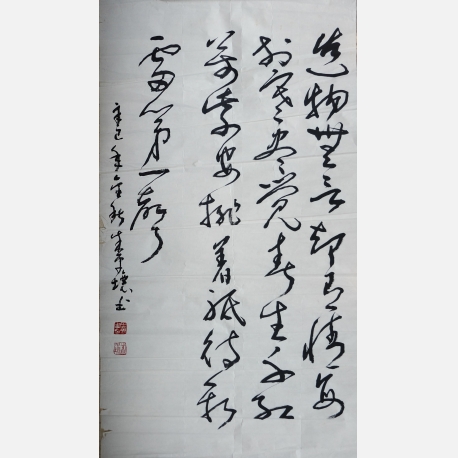 造物無言却有情每
於寒盡覺春生千紅
萬紫安排着祇待新
雷第一聲
辛巳年金秋書